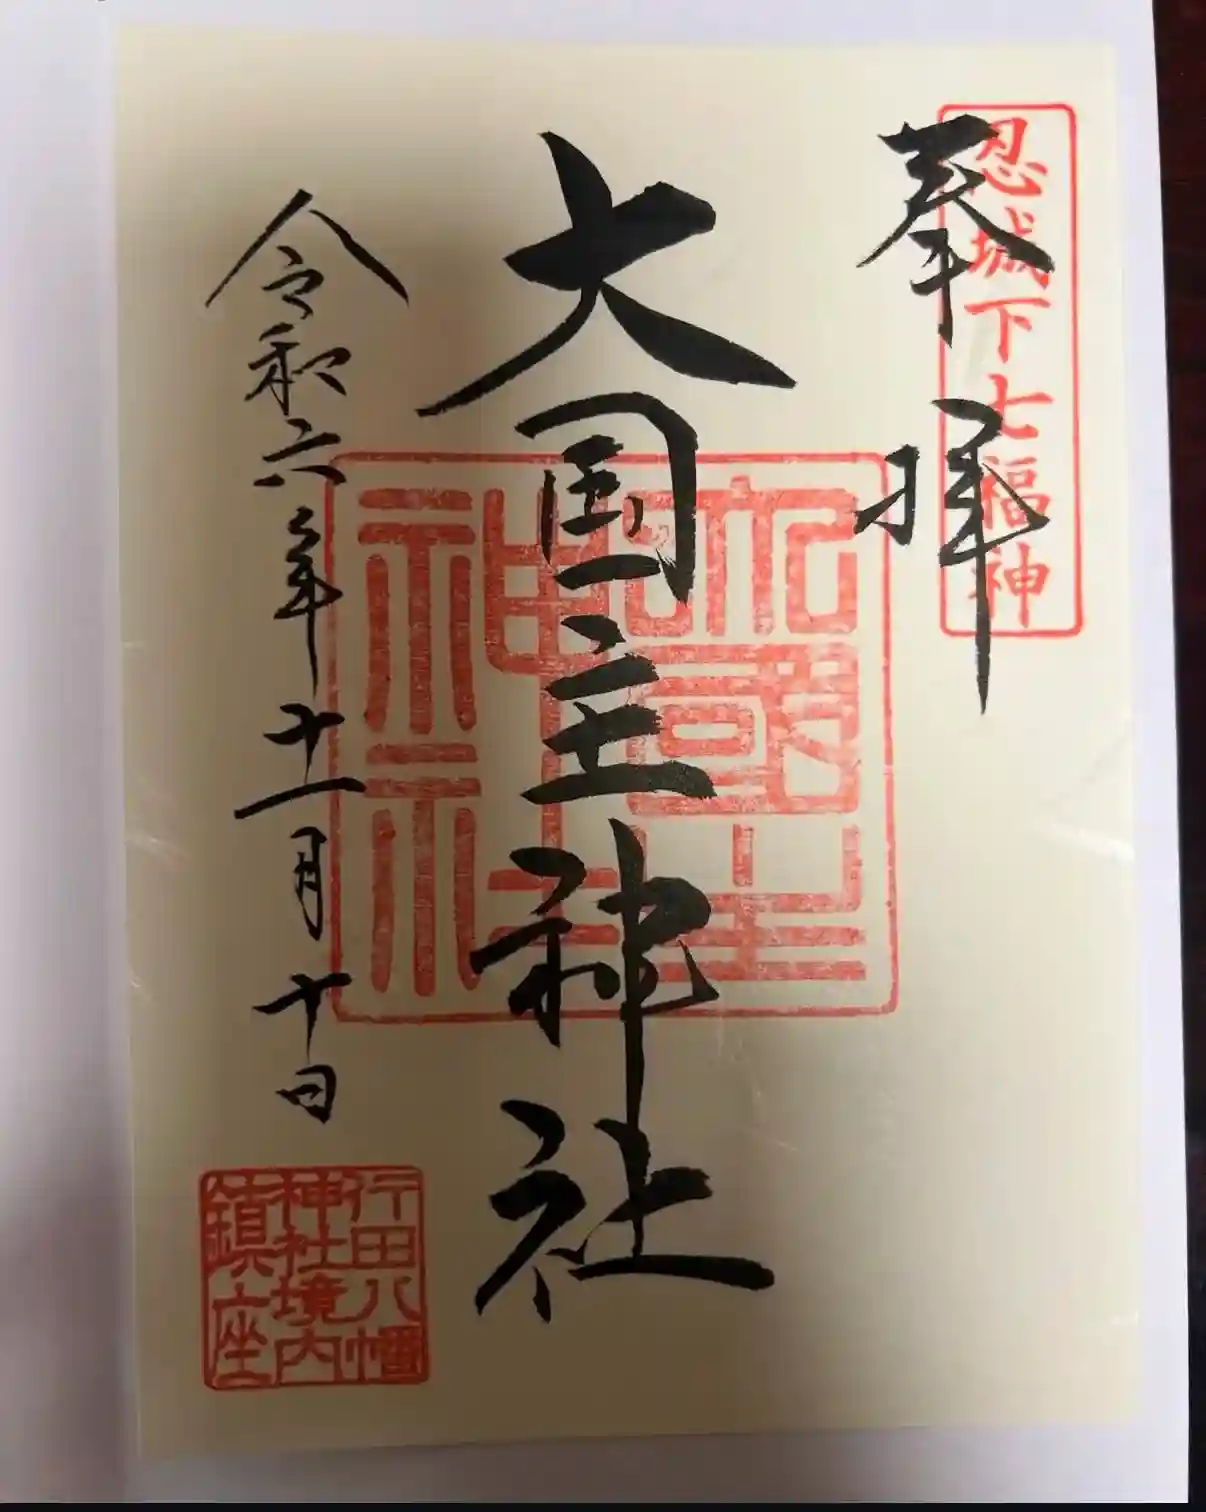 忍城下七福神
奉拝
大国主神社
大國主
神社
令和六年十一月十日
行田八幡
神社境内
鎮座